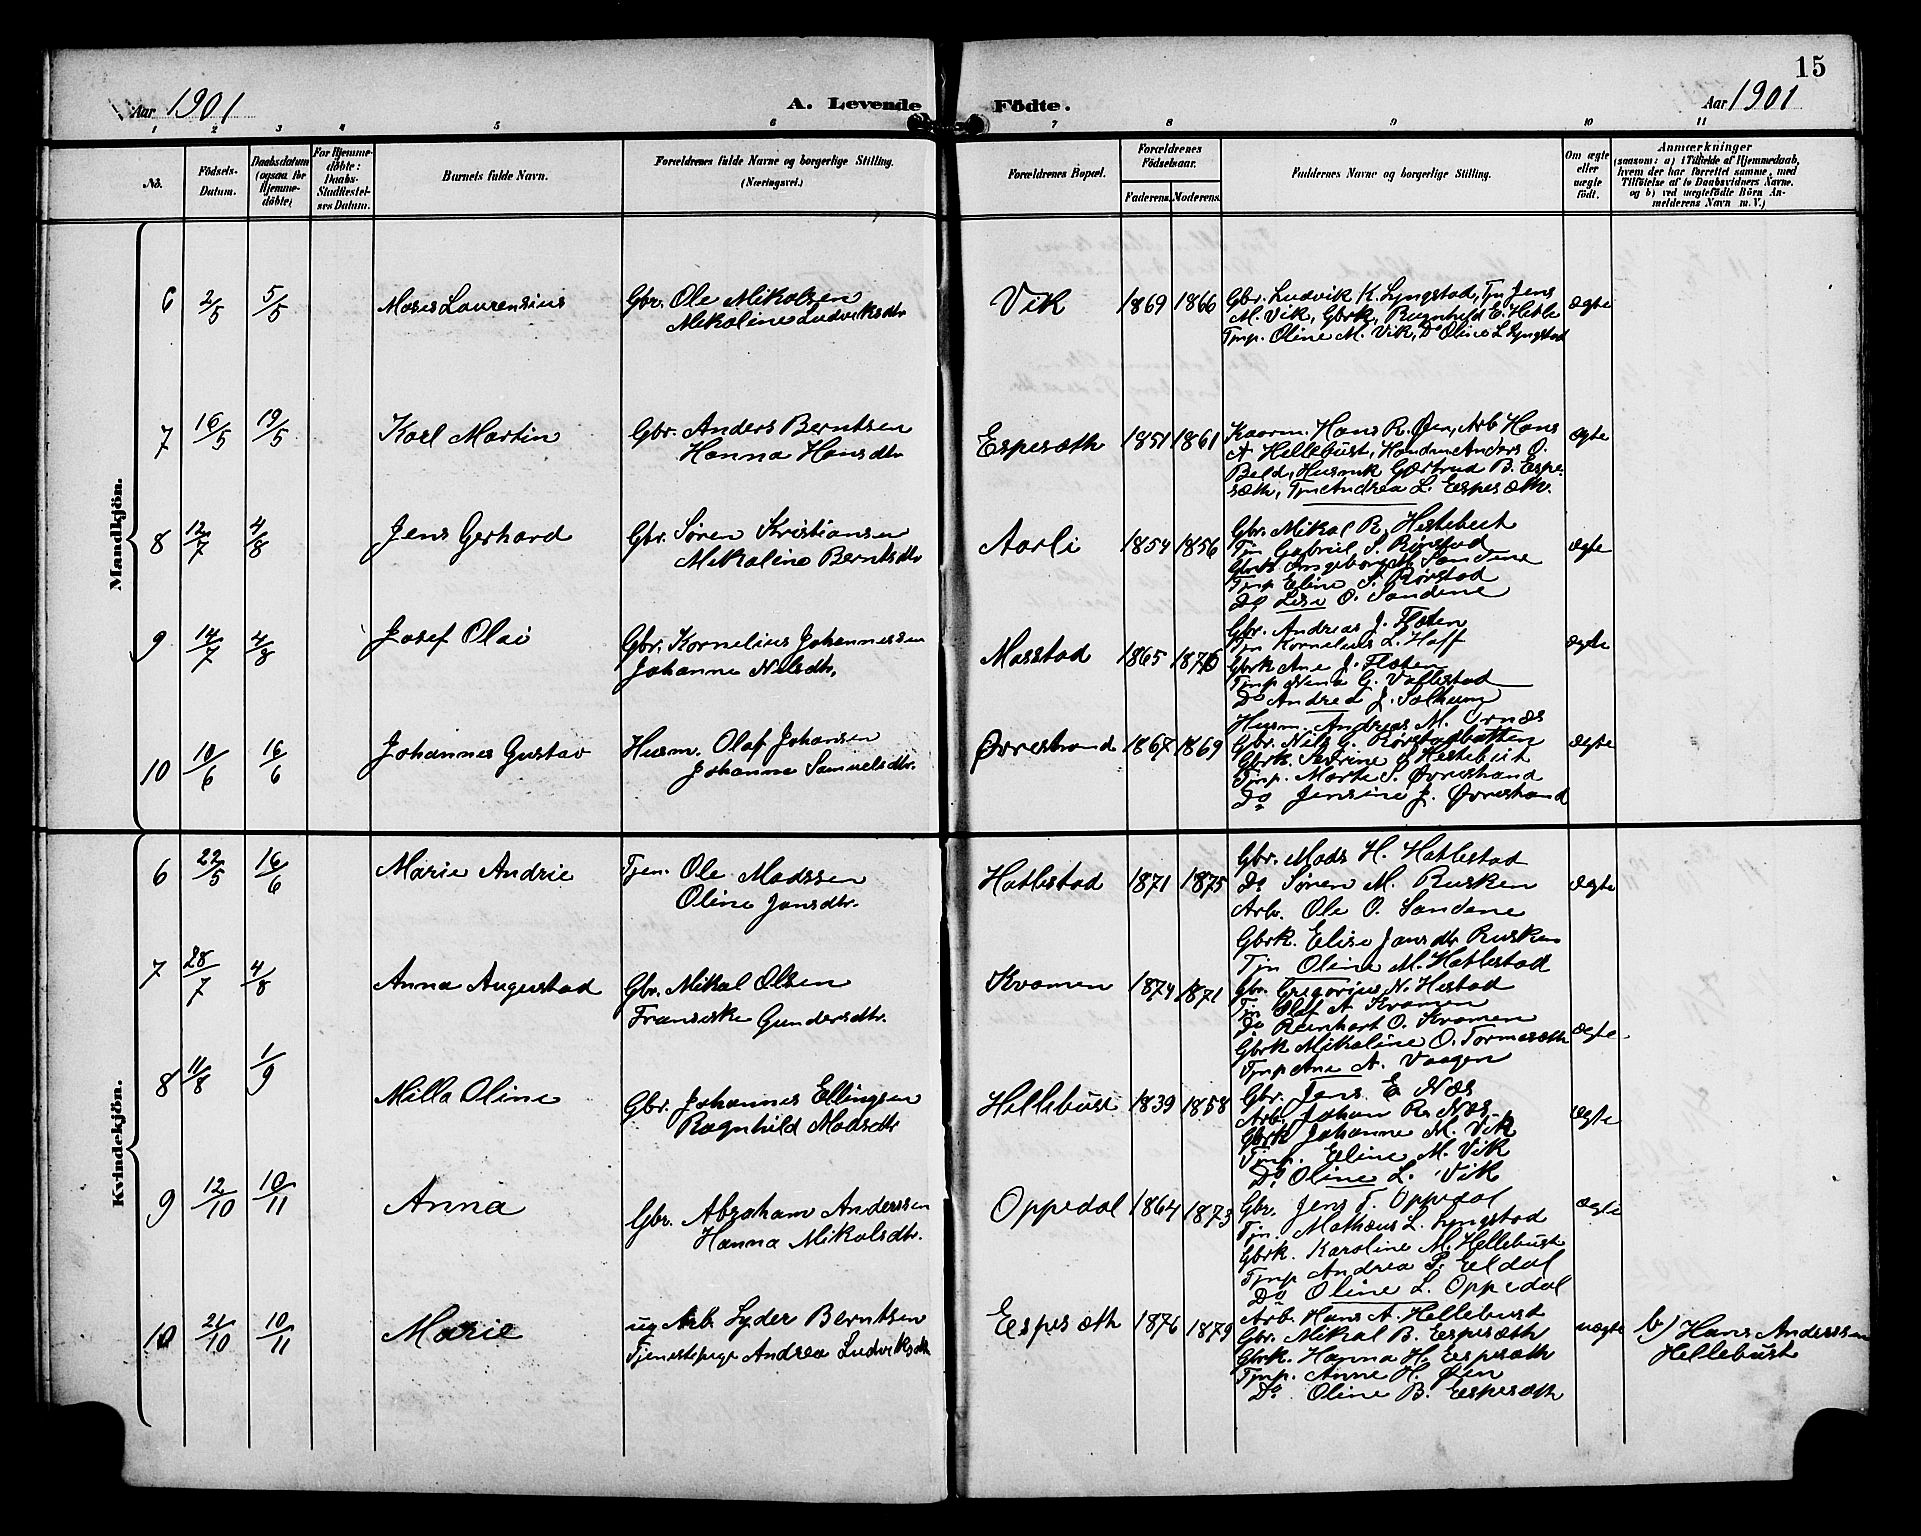 15
Aar 1901
A. Levende Födte.
Aar 1901
1 2 3 4 5 6 7 8 9 10 11
No.
Födsels-
Datum.
Daabsdatum
(ogsaa for
Hjemme-
döbte)
For Hjemme-
döbte:
Daabs-
Stadfæstel-
ses Datum.
Barnets fulde Navn.
Forældrenes fulde Navne og borgerlige Stilling.
(Næringsvei.)
Forældrenes Bopæl.
Forældrenes
Födselsaar.
Faderens. Moderens.
Faddernes Navne og borgerlige Stilling.
Om ægte
eller
uægte
födt.
Anmærkninger
(saasom: a) i Tilfælde af Hjemmedaab,
hvem der har forrettet samme, med
Tilföielse af to Daabsvidners Navne,
og b) ved uægtefödte Börn An-
melderens Navn m. V.)
Mandkjön.
6 2/5 5/5 Moses Laurensius
Gbr. Ole Mikalsen
Mikaline Ludviksdtr
Vik 1869 1866
Gbr. Ludvik K. Lyngstad, Tjn Jens
M. Vik, Gbrk, Ragnhild E. Hetle
Tmp. Oline M. Vik, Do Oline L Lyngstad
ægte
7 16/5 19/5 Karl Martin
Gbr. Anders Berntsen
Hanna Hansdtr
Espesæth 1851 1861
Kaarm. Hans R. Øen, Arb Hans
A Hellebust, Handm Anders O.
Beld, Husmk Gjertrud B. Espe-
sæth, Tjn Andrea L. Espesæth.
ægte
8 12/7 4/8 Jens Gerhard
Gbr. Søren Kristiansen
Mikaline Berntsdtr
Aarli 1854 1856
Gbr. Mikal R. Hestebeit
Tjn Gabriel S. Rørstad
Gbrk Ingeborg M. Sandene
Tmp Eline S. Rørstad
Do Lise O. Sandene
ægte
9 14/7 4/8 Josef Olai
Gbr. Kornelius Johannessen
Johanne Nilsdtr.
Masstad 1865 1876
Gbr. Andreas J. Flaten
Tjn Kornelius L. Hoff
Gbrk Ane J. Flaten
Tmp Nina G. Vallestad
Do Andrea J. Solhaug
ægte
10 10/6 16/6 Johannes Gustav
Husm. Olaf Johansen
Johanne Samuelsdtr.
Øvrestrand 1867 1869
Husm. Andreas M. Ornæs
Gbr. Nils G. Rørstadbotten
Gbrk. Severine O Hestebeit
Tmp. Marte S. Øvrestrand
Do Jensine J. Øvrestrand
ægte
Kvindekjön.
6 22/5 16/6 Marie Andrie
Tjen. Ole Madssen
Oline Jansdtr.
Hatlestad 1871 1875
Gbr. Mads H. Hatlestad
Do Søren M. Rusken
Arb. Ole O. Sandene
Gbrk. Elise Jansdtr Rusken
Tjn Oline M. Hatlestad
ægte
7 28/7 4/8 Anna Augustad
Gbr. Mikal Olsen
Franseske Gundersdtr.
Kvamen 1874 1871
Gbr. Gregorius N. Hestad
Tjn Olaf A Kvamen
Do Reinhart O. Kvamen
Gbrk Mikaline O. Tormesæth
Tmp Ane A. Vaagen
ægte
8 11/8 1/9 Milla Oline
Gbr. Johannes Ellingsen
Ragnhild Madsdtr
Hellebust 1839 1858
Gbr. Jens E Næs
Arb. Johan R. Næs
Gbrk Johanne M. Vik
Tmp. Eline M. Vik
Do Oline L. Vik
ægte
9 12/10 10/11 Anna
Gbr. Abraham Anderssen
Hanna Mikalsdtr.
Oppedal 1864 1873
Gbr. Jens T. Oppedal
Tjn. Mathæus L. Lyngstad
Gbrk. Karoline M. Hellebust
Tmp Andrea P. Eldal
Do Oline L. Oppedal
ægte
10 21/10 10/11 Marie
ug Arb. Lyder Berntsen
Tjenestepige Andrea Ludviksdtr
Espesæth 1876 1879
Arb. Hans A. Hellebust
Gbr. Mikal B. Espesæth
Gbrk. Hanna H. Espesæth
Tmp. Anne H. Øen
Do Oline B. Espesæth
uægte
b) Hans Anderssen
Hellebust